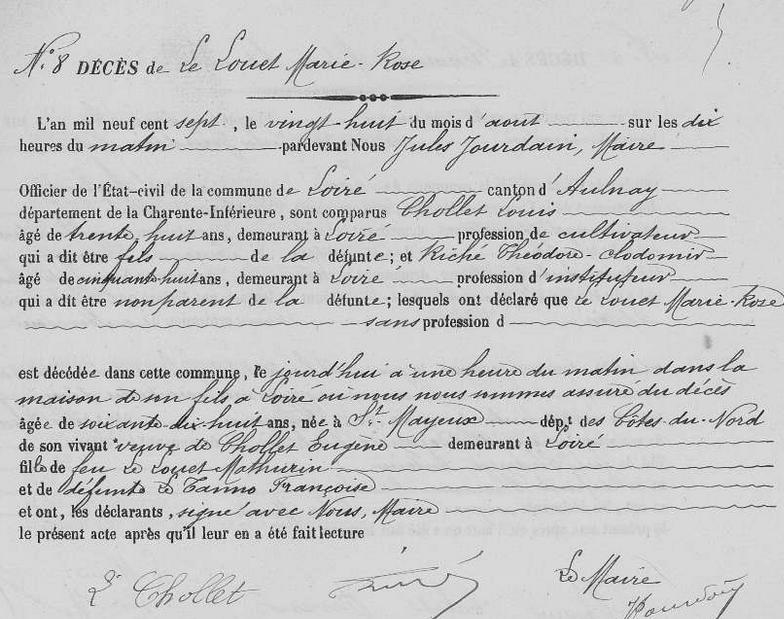 N° 8 DÉCÈS de Le Louet Marie-Rose
L'an mil neuf cent sept, le vingt-huit du mois d'aout sur les dix
heures du matin pardevant Nous Jules Jourdain, Maire
Officier de l'État-civil de la commune de Loiré canton d'Aulnay
département de la Charente-Inférieure, sont comparus Chollet Louis
âgé de trente huit ans, demeurant à Loiré profession de cultivateur
qui a dit être fils de la défunte; et Riché Théodore-clodomir
âgé de cinquante huit ans, demeurant à Loiré profession d'instituteur
qui a dit être non parent de la défunte; lesquels ont déclaré que Le Louet Marie-Rose
sans profession d
est décédée dans cette commune, le jourd'hui à une heure du matin dans la
maison de son fils à Loiré où nous nous sommes assuré du décès
âgée de soixante-dix-huit ans, née à St Mayeux dépt des Côtes-du-Nord
de son vivant veuve de Chollet Eugène demeurant à Loiré
fille de feu Le Louet Mathurin
et de défunte Le Tanno Françoise
et ont, les déclarants, signé avec Nous, Maire
le présent acte après qu'il leur en a été fait lecture
Chollet Riché Le Maire
Jourdain